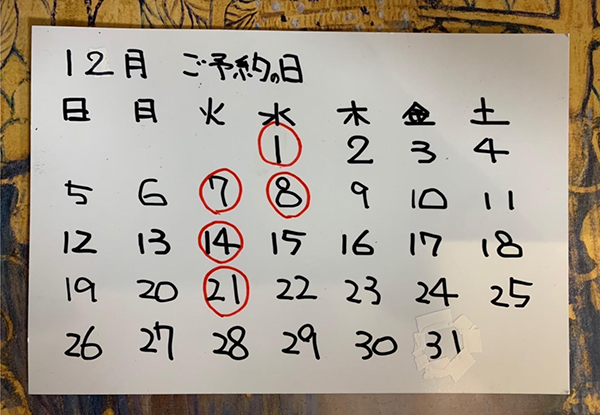 12月 ご予約の日
日 月 火 水 木 金 土
1 2 3 4
5 6 7 8 9 10 11
12 13 14 15 16 17 18
19 20 21 22 23 24 25
26 27 28 29 30 31